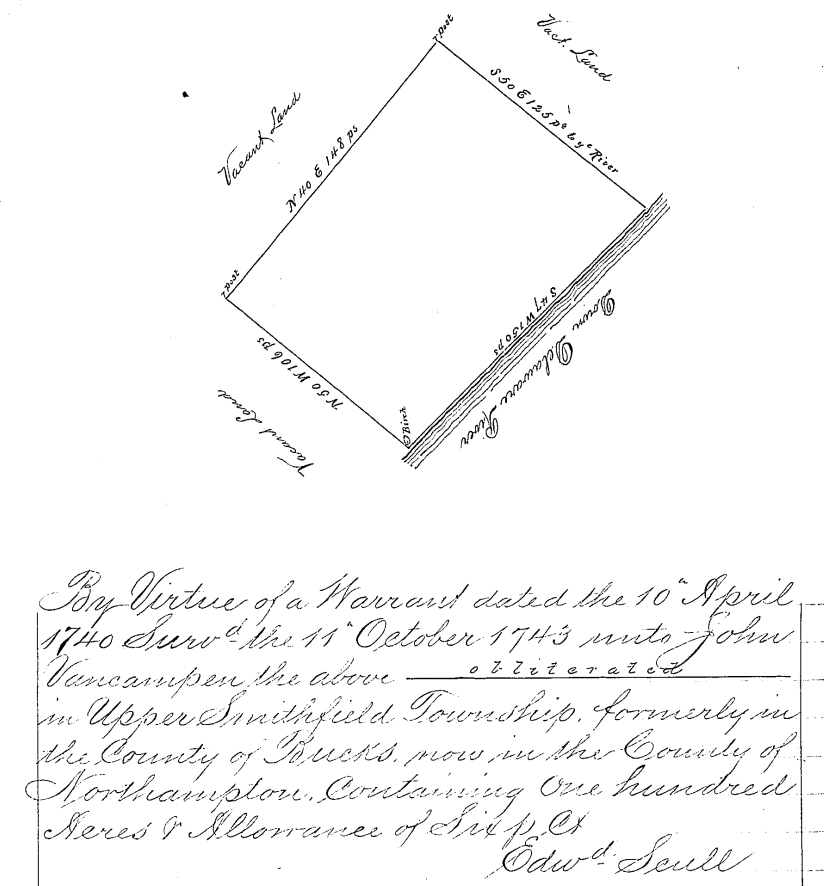 Post
Vact. Land
S 50 E 125 ps to ye River
Vacant Land
N 40 E 148 ps
Post
S 47 W 150 ps
Down Delaware River
N 50 W 106 ps
Vacant Land
Birch
By Virtue of a Warrant dated the 10" April
1740 Survd the 11" October 1743 unto John
Vancampen the above obliterated
in Upper Smithfield Township, formerly in
the County of Bucks, now in the County of
Northampton, Containing One hundred
Acres & Allowance of Six p Ct
Edwd Scull